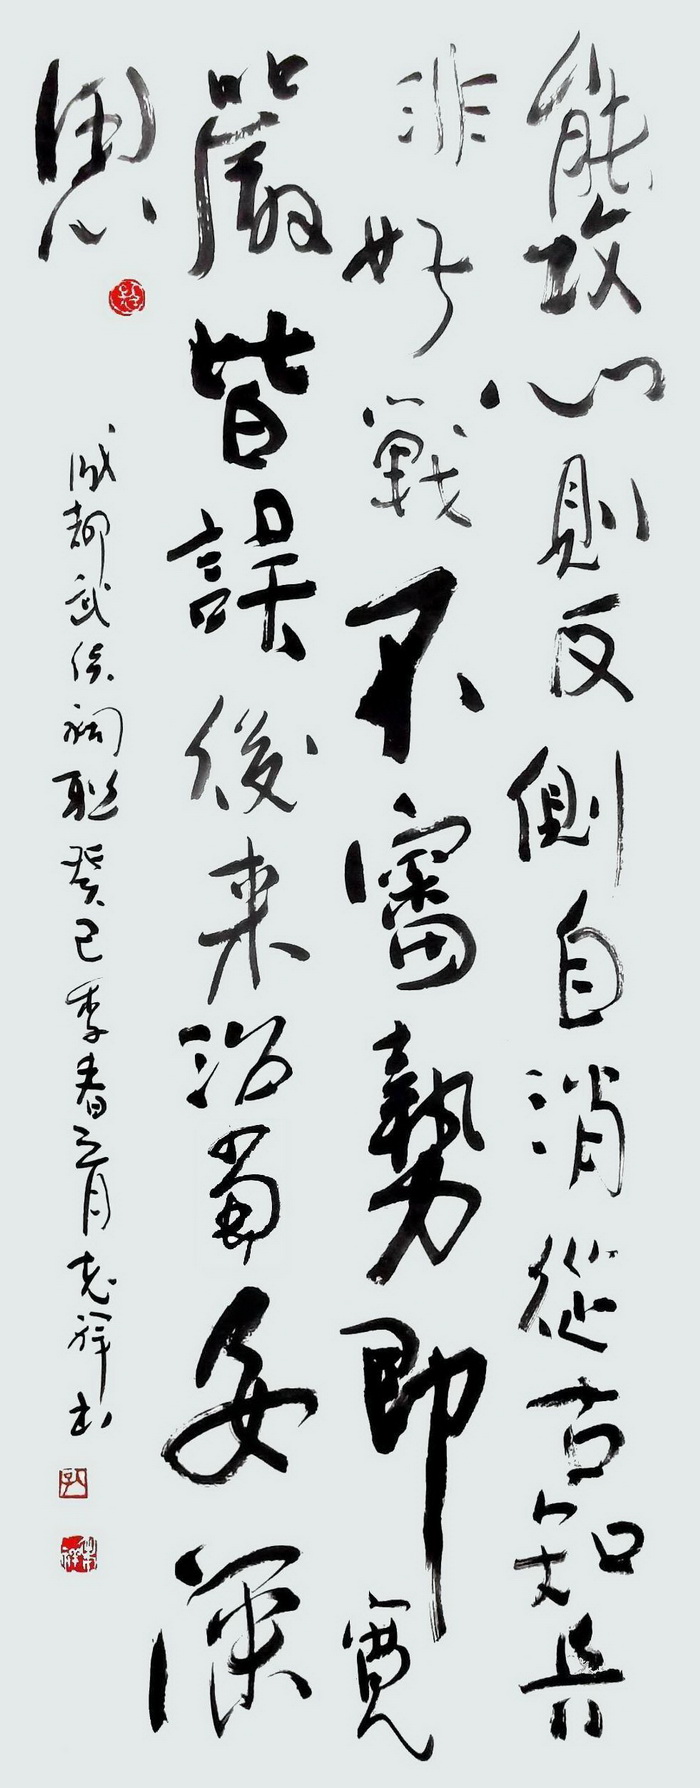 能攻心則反側自消從古知兵
非好戰不審勢即寬
嚴皆誤後来治蜀要深
思
成都武侯祠联癸巳季春三月祥书